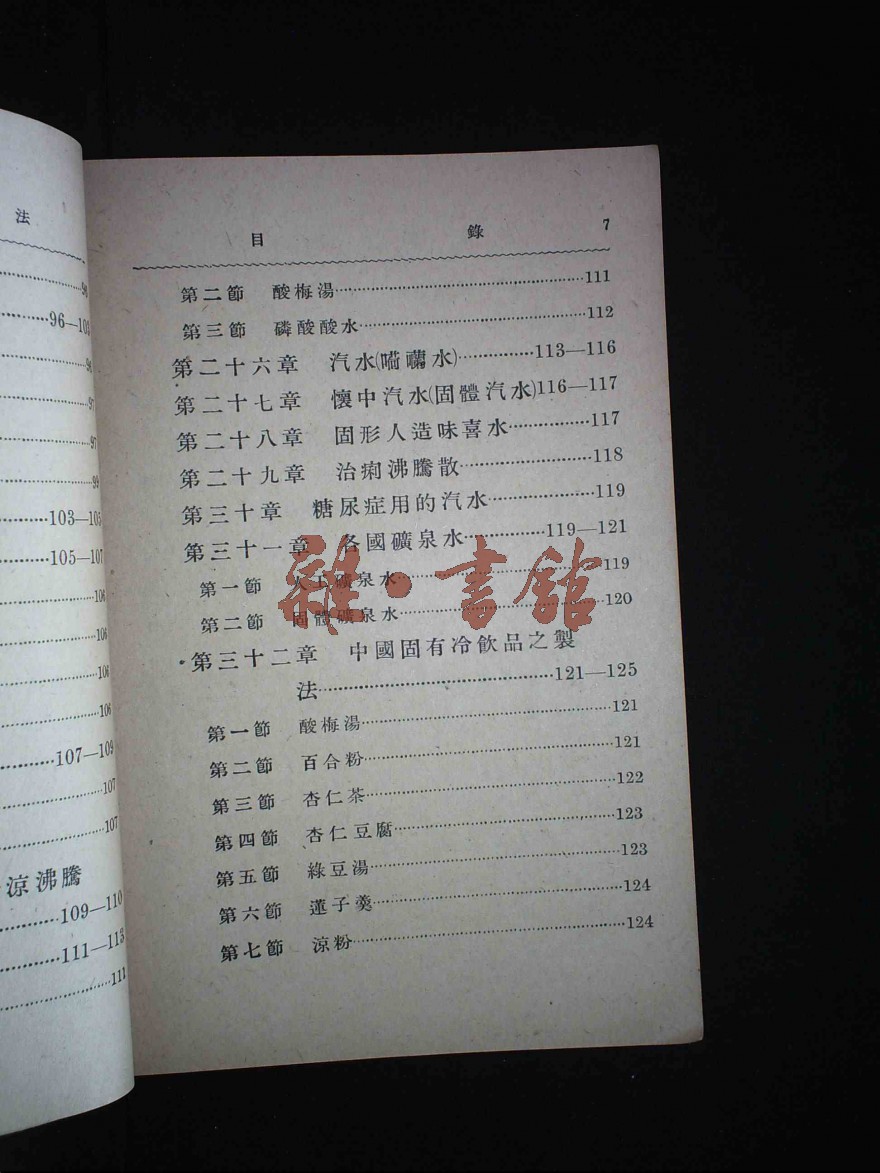 法
96
96—103
96
97
97
99
103—105
105—107
106
106
106
106
107—109
107
107
涼沸騰
109—110
111—113
111
目 錄 7
第二節 酸梅湯……111
第三節 磷酸酸水……112
第二十六章 汽水(嗬囒水)……113—116
第二十七章 懷中汽水(固體汽水)116—117
第二十八章 固形人造味喜水……117
第二十九章 治痢沸騰散……118
第三十章 糖尿症用的汽水……119
第三十一章 各國礦泉水……119—121
第一節 人工礦泉水……119
第二節 固體礦泉水……120
第三十二章 中國固有冷飲品之製
法……121—125
第一節 酸梅湯……121
第二節 百合粉……121
第三節 杏仁茶……122
第四節 杏仁豆腐……123
第五節 綠豆湯……123
第六節 蓮子羹……124
第七節 涼粉……124
雜·書館